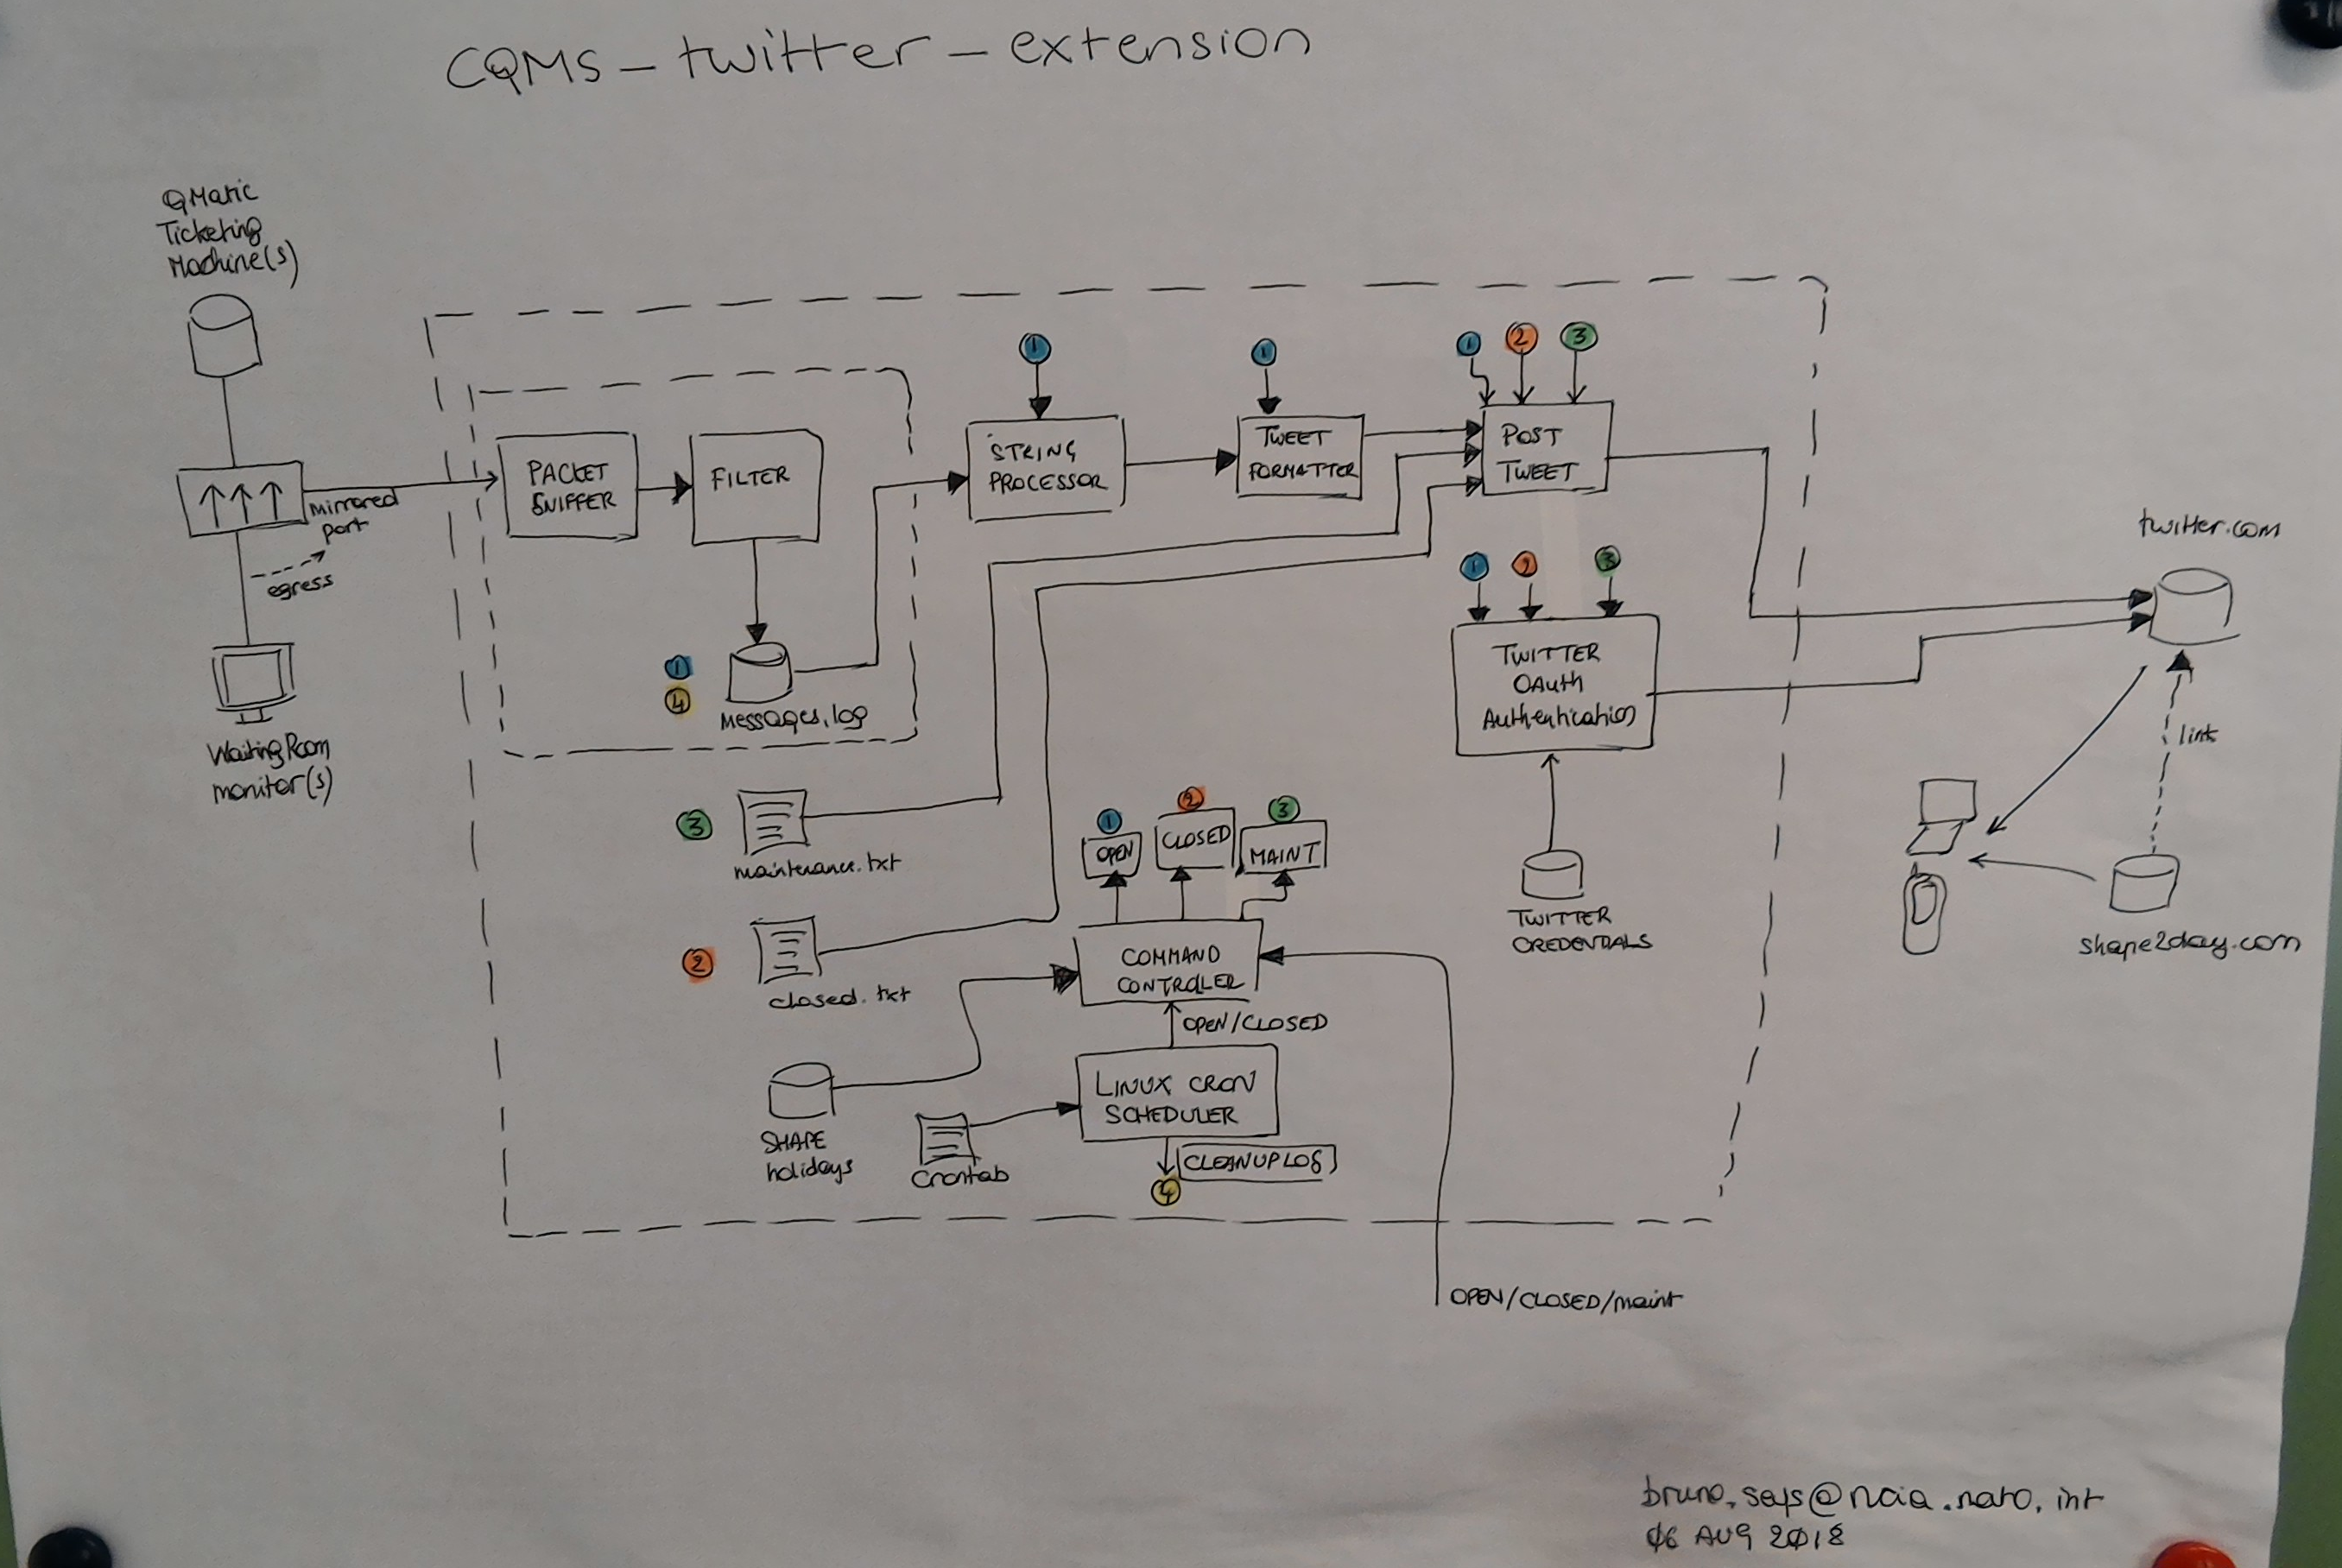 CQMS - twitter - extension
QMatic
Ticketing
Machine(s)
mirrored
port
egress
WaitingRoom
monitor(s)
PACKET
SNIFFER
FILTER
1
4
Messages.log
1
STRING
PROCESSOR
1
TWEET
FORMATTER
1 2 3
POST
TWEET
1 2 3
TWITTER
OAuth
Authentication
TWITTER
CREDENTIALS
3
maintenance.txt
2
closed.txt
1 2 3
OPEN CLOSED MAINT
COMMAND
CONTROLER
OPEN/CLOSED
LINUX CRON
SCHEDULER
CLEANUPLOG
4
SHAPE
holidays
Crontab
OPEN/CLOSED/maint
twitter.com
link
shape2day.com
bruno.seys@ncia.nato.int
06 AUG 2018